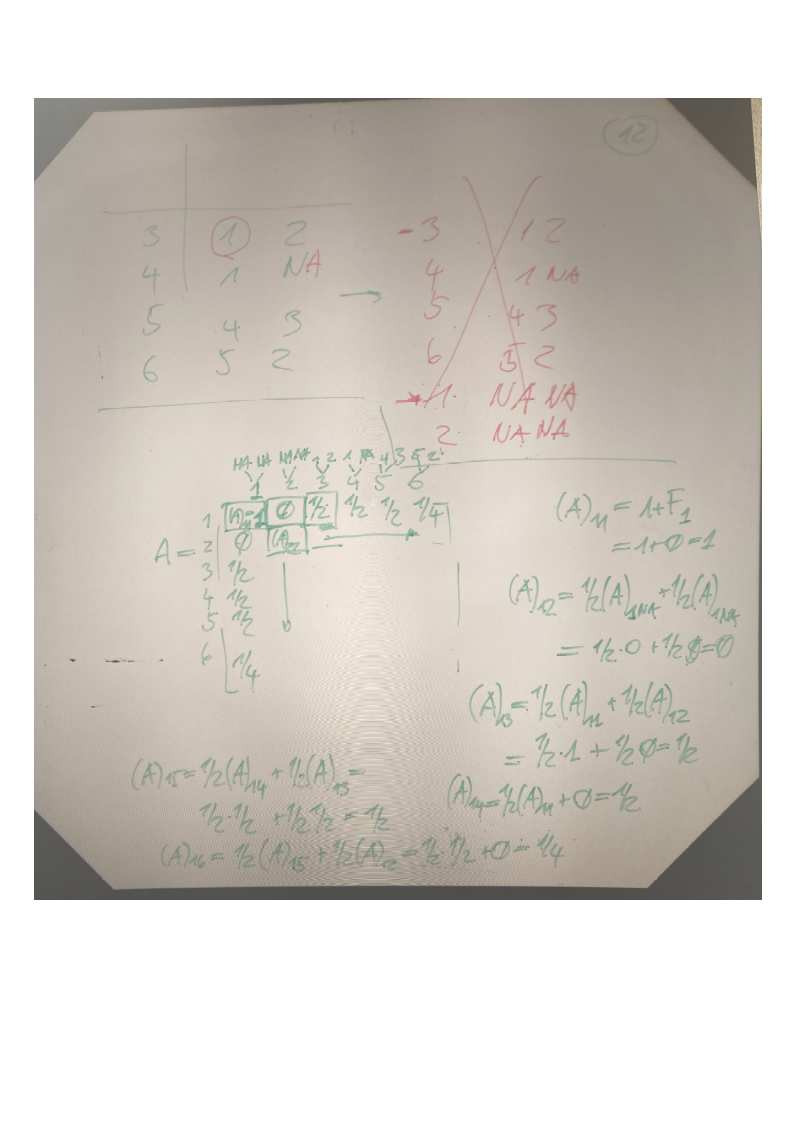 12
3 1 2
4 1 NA
5 4 3
6 5 2
→
- 3 1 2
4 1 NA
5 4 3
6 5 2
→ 1 NA NA
2 NA NA
NA NA NA NA 1 2 1 NA 4 3 5 2
1 2 3 4 5 6
A =
1 (A)₁₁=1 Ø 1/2 1/2 1/2 1/4
2 Ø (A)₂₂
3 1/2
4 1/2
5 1/2
6 1/4
(A)₁₁ = 1+F₁
= 1+Ø = 1
(A)₁₂ = 1/2(A)₁NA + 1/2(A)₁NA
= 1/2·0 + 1/2 Ø = Ø
(A)₁₃ = 1/2(A)₁₁ + 1/2(A)₁₂
= 1/2·1 + 1/2 Ø = 1/2
(A)₁₄ = 1/2(A)₁₁ + Ø = 1/2
(A)₁₅ = 1/2(A)₁₄ + 1/2(A)₁₃ =
1/2·1/2 + 1/2 1/2 = 1/2
(A)₁₆ = 1/2(A)₁₅ + 1/2(A)₁₂ = 1/2·1/2 + Ø = 1/4